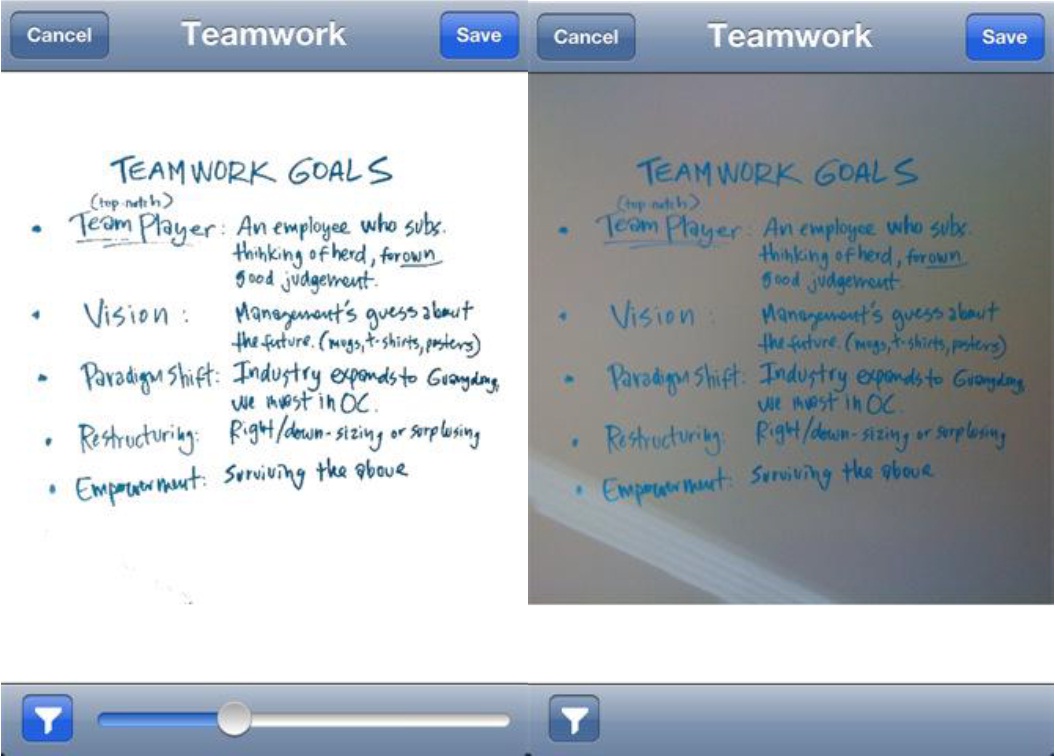 Cancel Teamwork Save
TEAMWORK GOALS
(top-notch)
• Team Player: An employee who subs.
thinking of herd, for own
good judgement.
• Vision: Management's guess about
the future. (mugs, t-shirts, posters)
• Paradigm Shift: Industry expands to Guangdong,
we invest in OC.
• Restructuring: Right/down-sizing or surplusing
• Empowerment: Surviving the above
Cancel Teamwork Save
TEAMWORK GOALS
(top-notch)
• Team Player: An employee who subs.
thinking of herd, for own
good judgement.
• Vision: Management's guess about
the future. (mugs, t-shirts, posters)
• Paradigm Shift: Industry expands to Guangdong,
we invest in OC.
• Restructuring: Right/down-sizing or surplusing
• Empowerment: Surviving the above